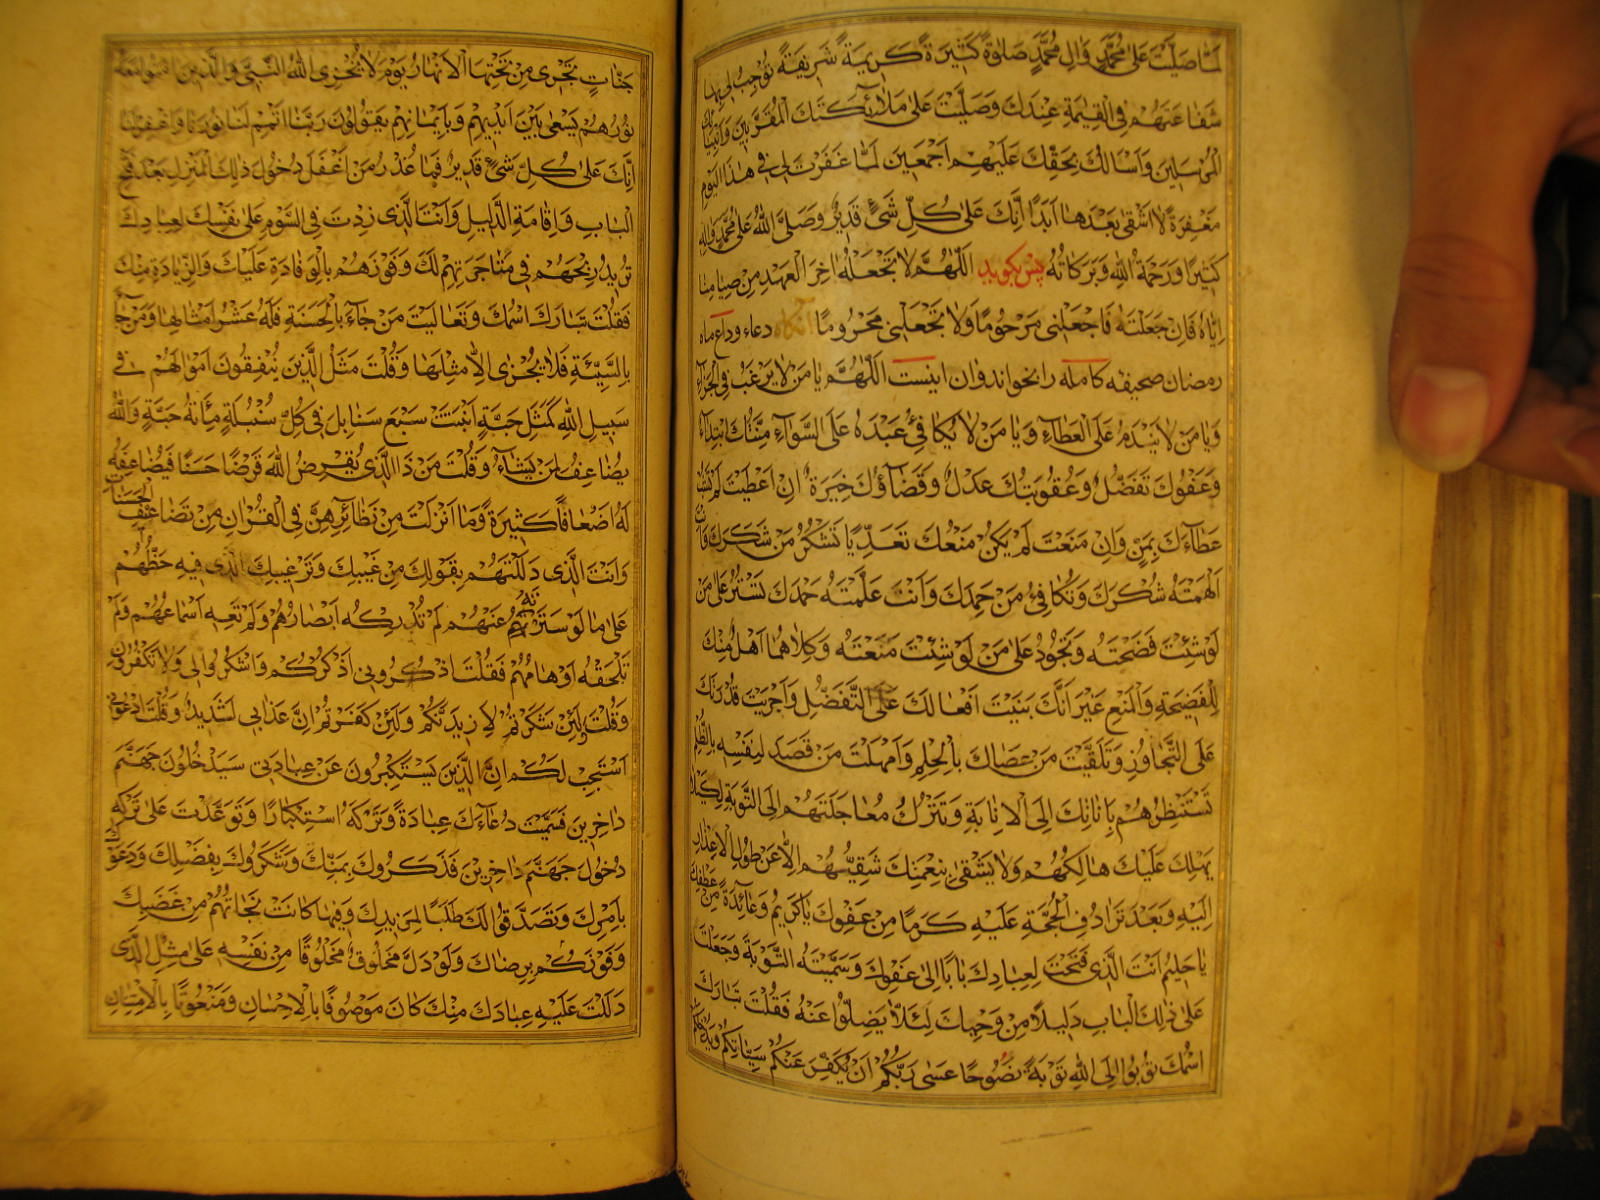 لمّا صَلَّيْتَ عَلىٰ مُحَمَّدٍ وَالِ مُحَمَّدٍ صَلٰوةً كَثِيرَةً كَرِيمَةً شَرِيفَةً تُوْجِبُ لي بِها
شَفاعَتَهُمْ فِي الْقِيٰمَةِ عِنْدَكَ وَصَلَّيْتَ عَلىٰ مَلائِكَتِكَ الْمُقَرَّبينَ وَاَنْبِيائِكَ
الْمُرْسَلينَ وَاَسْاَلُكَ بِحَقِّكَ عَلَيْهِمْ اَجْمَعينَ لَمّا غَفَرْتَ لي في هٰذَا الْيَوْمِ
مَغْفِرَةً لا اَشْقىٰ بَعْدَها اَبَدًا اِنَّكَ عَلىٰ كُلِّ شَيْءٍ قَديرٌ وَصَلَّى اللهُ عَلىٰ مُحَمَّدٍ وَالِهِ
كَثيرًا وَرَحْمَةُ اللهِ وَبَرَكاتُهُ پس بكويد اَللّٰهُمَّ لا تَجْعَلْهُ اٰخِرَ الْعَهْدِ مِنْ صِيامِنا
اِيّاهُ فَاِنْ جَعَلْتَهُ فَاجْعَلْني مَرْحُومًا وَلا تَجْعَلْني مَحْرُومًا آنكاه دعاء وداع ماه
رمضان صحيفه كامله را بخواند وان اينست اَللّٰهُمَّ يا مَنْ لا يَرْغَبُ فِي الْجَزاءِ
وَيا مَنْ لا يَنْدَمُ عَلَى الْعَطاءِ وَيا مَنْ لا يُكافِئُ عَبْدَهُ عَلَى السَّواءِ مِنَّتُكَ ابْتِداءٌ
وَعَفْوُكَ تَفَضُّلٌ وَعُقُوبَتُكَ عَدْلٌ وَقَضاؤُكَ خِيَرَةٌ اِنْ اَعْطَيْتَ لَمْ تَشُبْ
عَطاءَكَ بِمَنٍّ وَاِنْ مَنَعْتَ لَمْ يَكُنْ مَنْعُكَ تَعَدِّيًا تَشْكُرُ مَنْ شَكَرَكَ وَاَنْتَ
اَلْهَمْتَهُ شُكْرَكَ وَتُكافِئُ مَنْ حَمِدَكَ وَاَنْتَ عَلَّمْتَهُ حَمْدَكَ تَسْتُرُ عَلىٰ مَنْ
لَوْ شِئْتَ فَضَحْتَهُ وَتَجُودُ عَلىٰ مَنْ لَوْ شِئْتَ مَنَعْتَهُ وَكِلاهُما اَهْلٌ مِنْكَ
لِلْفَضيحَةِ وَالْمَنْعِ غَيْرَ اَنَّكَ بَنَيْتَ اَفْعالَكَ عَلَى التَّفَضُّلِ وَاَجْرَيْتَ قُدْرَتَكَ
عَلَى التَّجاوُزِ وَتَلَقَّيْتَ مَنْ عَصاكَ بِالْحِلْمِ وَاَمْهَلْتَ مَنْ قَصَدَ لِنَفْسِهِ بِالظُّلْمِ
تَسْتَنْظِرُهُمْ بِاَناتِكَ اِلَى الْاِنابَةِ وَتَتْرُكُ مُعاجَلَتَهُمْ اِلَى التَّوْبَةِ لِكَيْلا
يَهْلِكَ عَلَيْكَ هالِكُهُمْ وَلا يَشْقىٰ بِنِعْمَتِكَ شَقِيُّهُمْ اِلّا عَنْ طُولِ الْاِعْذارِ
اِلَيْهِ وَبَعْدَ تَرادُفِ الْحُجَّةِ عَلَيْهِ كَرَمًا مِنْ عَفْوِكَ يا كَريمُ وَعائِدَةً مِنْ عَطْفِكَ
يا حَليمُ اَنْتَ الَّذي فَتَحْتَ لِعِبادِكَ بابًا اِلىٰ عَفْوِكَ وَسَمَّيْتَهُ التَّوْبَةَ وَجَعَلْتَ
عَلىٰ ذٰلِكَ الْبابِ دَليلًا مِنْ وَحْيِكَ لِئَلّا يَضِلُّوا عَنْهُ فَقُلْتَ تَبارَكَ
اسْمُكَ تُوبُوا اِلَى اللهِ تَوْبَةً نَصُوحًا عَسىٰ رَبُّكُمْ اَنْ يُكَفِّرَ عَنْكُمْ سَيِّئاتِكُمْ وَيُدْخِلَكُمْ
جَنّاتٍ تَجْري مِنْ تَحْتِهَا الْاَنْهارُ يَوْمَ لا يُخْزِي اللهُ النَّبِيَّ وَالَّذينَ اٰمَنُوا مَعَهُ
نُورُهُمْ يَسْعىٰ بَيْنَ اَيْديهِمْ وَبِاَيْمانِهِمْ يَقُولُونَ رَبَّنا اَتْمِمْ لَنا نُورَنا وَاغْفِرْ لَنا
اِنَّكَ عَلىٰ كُلِّ شَيْءٍ قَديرٌ فَما عُذْرُ مَنْ اَغْفَلَ دُخُولَ ذٰلِكَ الْمَنْزِلِ بَعْدَ فَتْحِ
الْبابِ وَاِقامَةِ الدَّليلِ وَاَنْتَ الَّذي زِدْتَ فِي السَّوْمِ عَلىٰ نَفْسِكَ لِعِبادِكَ
تُريدُ رِبْحَهُمْ في مُتاجَرَتِهِمْ لَكَ وَفَوْزَهُمْ بِالْوِفادَةِ عَلَيْكَ وَالزِّيادَةِ مِنْكَ
فَقُلْتَ تَبارَكَ اسْمُكَ وَتَعالَيْتَ مَنْ جاءَ بِالْحَسَنَةِ فَلَهُ عَشْرُ اَمْثالِها وَمَنْ جاءَ
بِالسَّيِّئَةِ فَلا يُجْزىٰ اِلّا مِثْلَها وَقُلْتَ مَثَلُ الَّذينَ يُنْفِقُونَ اَمْوالَهُمْ في
سَبيلِ اللهِ كَمَثَلِ حَبَّةٍ اَنْبَتَتْ سَبْعَ سَنابِلَ في كُلِّ سُنْبُلَةٍ مِائَةُ حَبَّةٍ وَاللهُ
يُضاعِفُ لِمَنْ يَشاءُ وَقُلْتَ مَنْ ذَا الَّذي يُقْرِضُ اللهَ قَرْضًا حَسَنًا فَيُضاعِفَهُ
لَهُ اَضْعافًا كَثيرَةً وَما اَنْزَلْتَ مِنْ نَظائِرِهِنَّ فِي الْقُرْاٰنِ مِنْ تَضاعيفِ الْحَسَناتِ
وَاَنْتَ الَّذي دَلَلْتَهُمْ بِقَوْلِكَ مِنْ غَيْبِكَ وَتَرْغيبِكَ الَّذي فيهِ حَظُّهُمْ
عَلىٰ ما لَوْ سَتَرْتَهُ عَنْهُمْ لَمْ تُدْرِكْهُ اَبْصارُهُمْ وَلَمْ تَعِهِ اَسْماعُهُمْ وَلَمْ
تَلْحَقْهُ اَوْهامُهُمْ فَقُلْتَ اذْكُرُوني اَذْكُرْكُمْ وَاشْكُرُوا لي وَلا تَكْفُرُونِ
وَقُلْتَ لَئِنْ شَكَرْتُمْ لَاَزيدَنَّكُمْ وَلَئِنْ كَفَرْتُمْ اِنَّ عَذابي لَشَديدٌ وَقُلْتَ ادْعُوني
اَسْتَجِبْ لَكُمْ اِنَّ الَّذينَ يَسْتَكْبِرُونَ عَنْ عِبادَتي سَيَدْخُلُونَ جَهَنَّمَ
داخِرينَ فَسَمَّيْتَ دُعاءَكَ عِبادَةً وَتَرْكَهُ اسْتِكْبارًا وَتَوَعَّدْتَ عَلىٰ تَرْكِهِ
دُخُولَ جَهَنَّمَ داخِرينَ فَذَكَرُوكَ بِمَنِّكَ وَشَكَرُوكَ بِفَضْلِكَ وَدَعَوْكَ
بِاَمْرِكَ وَتَصَدَّقُوا لَكَ طَلَبًا لِمَزيدِكَ وَفيها كانَتْ نَجاتُهُمْ مِنْ غَضَبِكَ
وَفَوْزُهُمْ بِرِضاكَ وَلَوْ دَلَّ مَخْلُوقٌ مَخْلُوقًا مِنْ نَفْسِهِ عَلىٰ مِثْلِ الَّذي
دَلَلْتَ عَلَيْهِ عِبادَكَ مِنْكَ كانَ مَوْصُوفًا بِالْاِحْسانِ وَمَنْعُوتًا بِالْاِمْتِنانِ